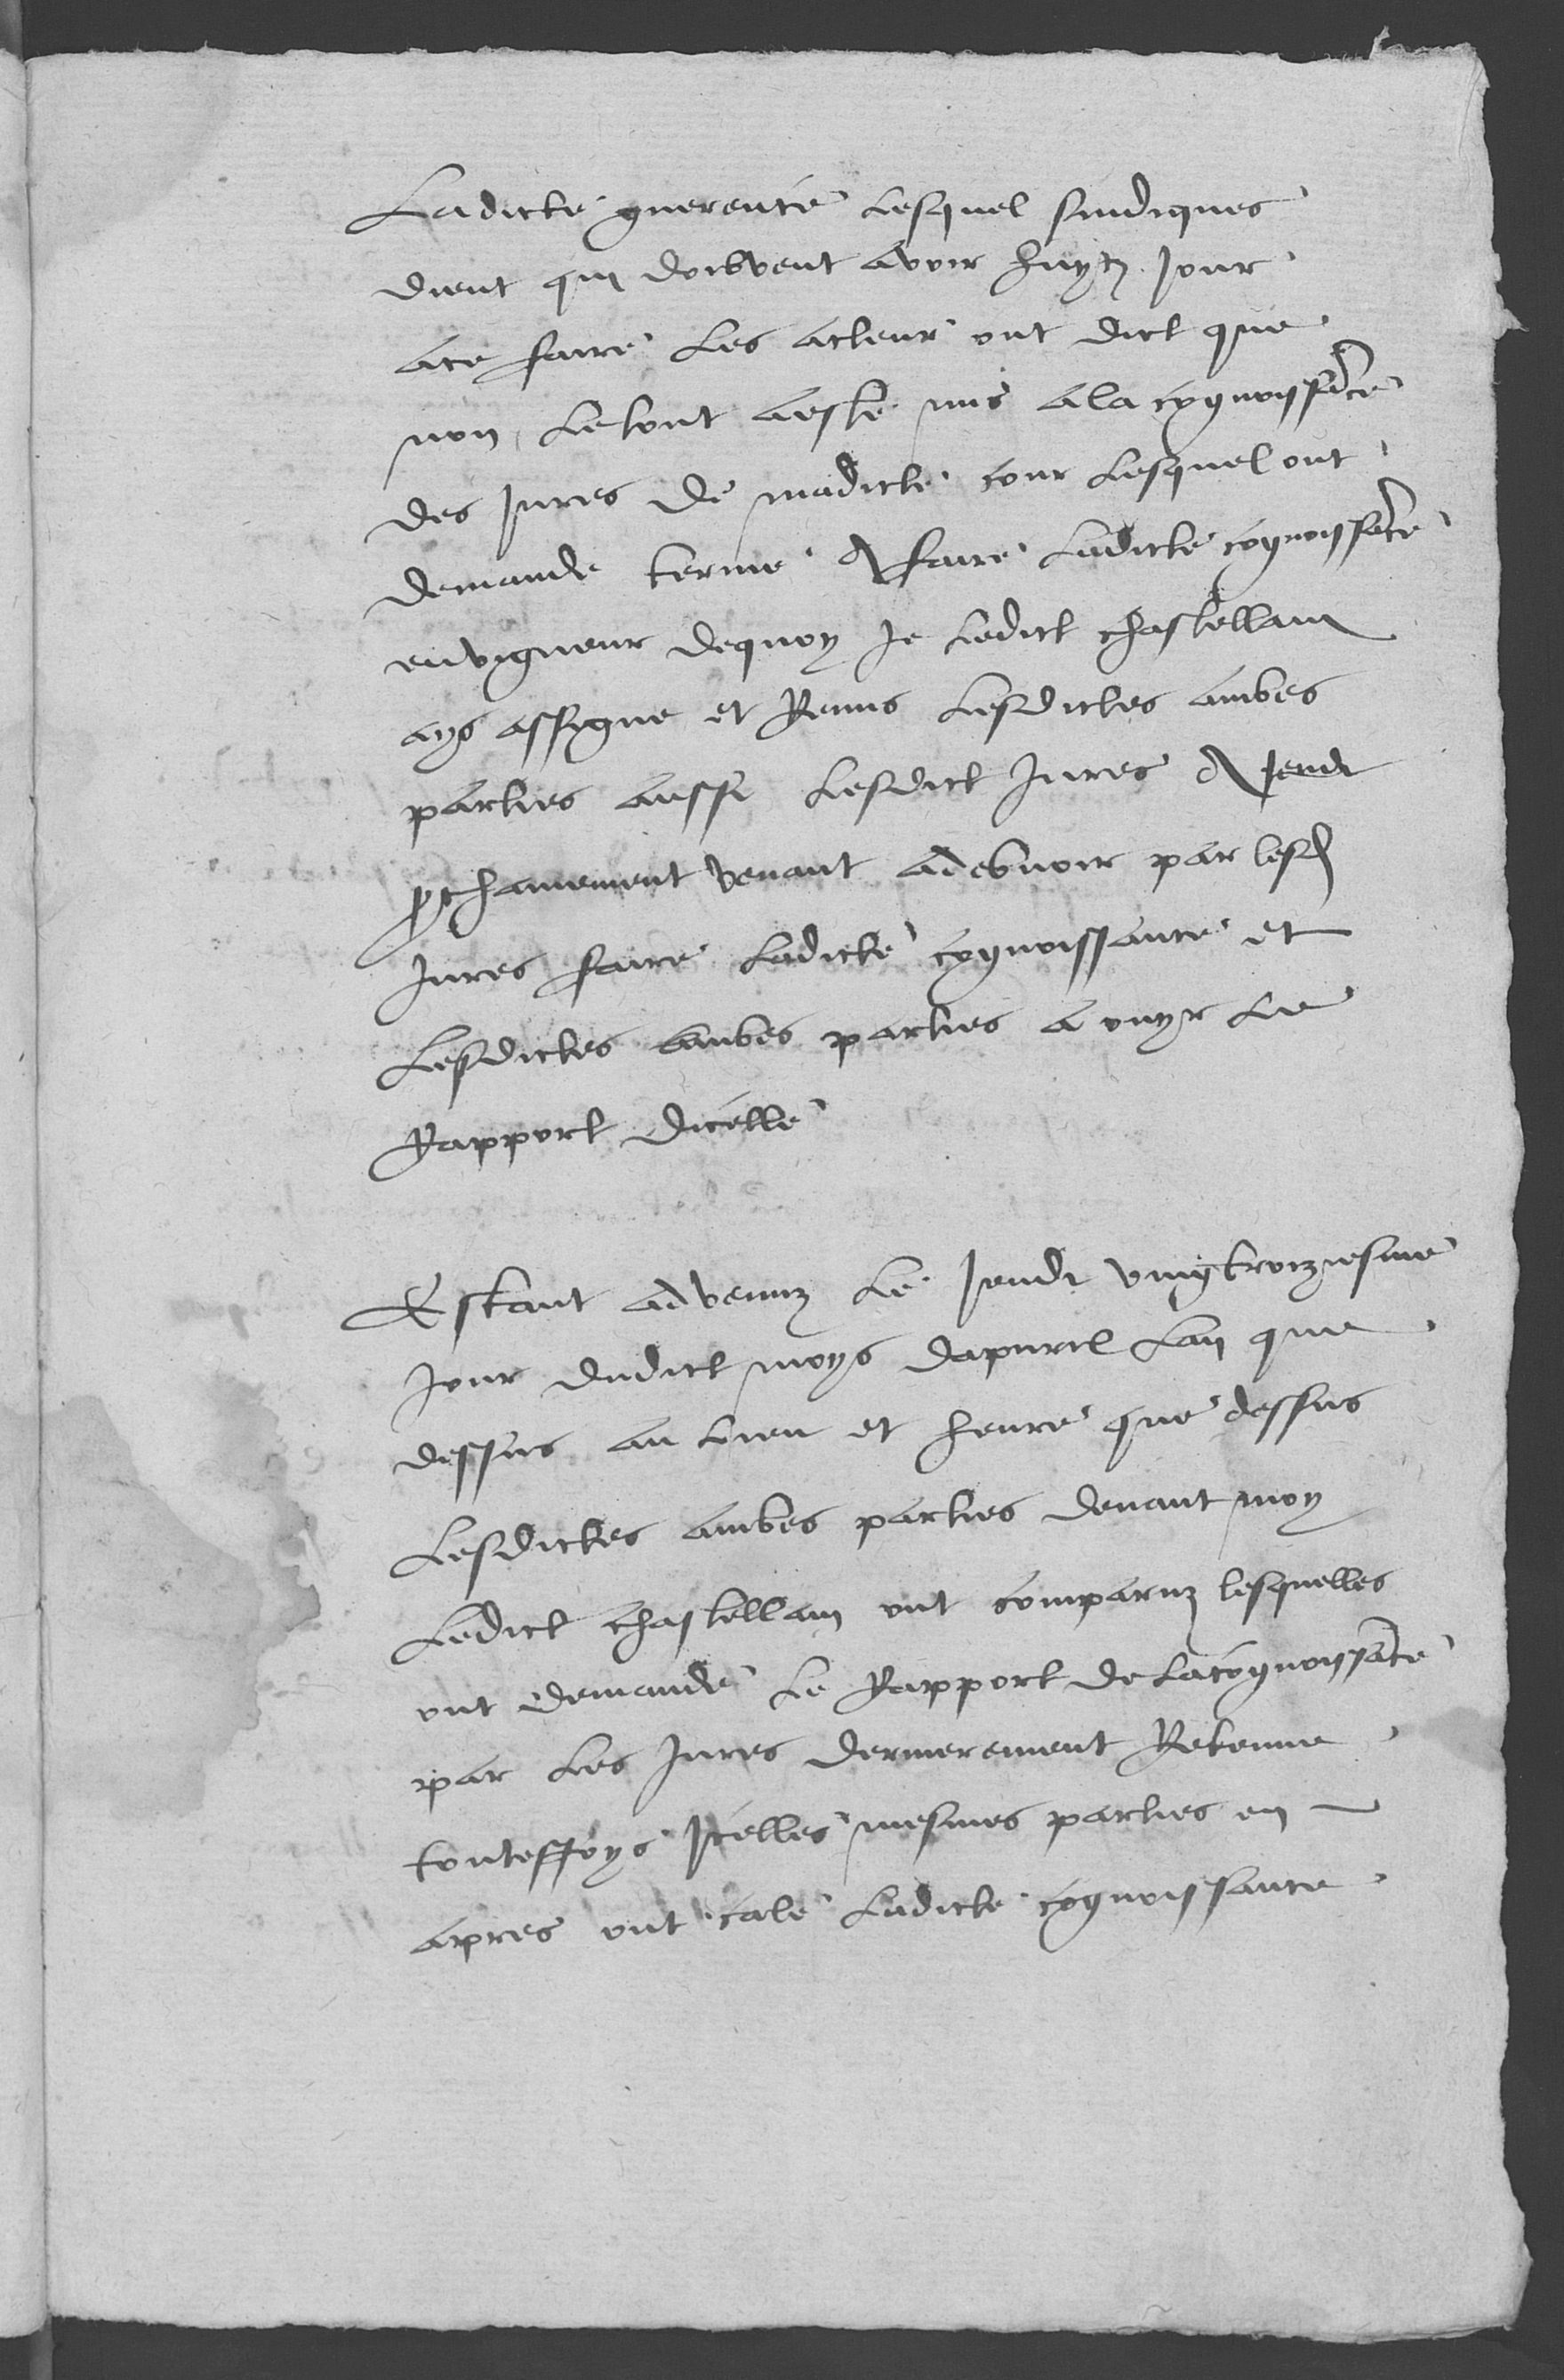 Ladicte guerence lesquel sindiques
dient quj doibvent avoir huytz jour
ace faire les acteur ont dict que
non, le tout aeste mis ala cognoissãce
des jures de madicte cour lesquel ont
demande terme A faire ladicte cognoissãce
envigueur dequoy je ledict chastellain
ays assigne et Remis lesdictes ambes
parties aussi lesdict jures A jeudi
prochainement venant adebvoir par lesd
jures faire ladicte cognoissance et
Lesdictes ambes parties a ouyr le
Rapport dicelle

Estant advenuz le jeudi vingtroiziesme
jour dudict moys dapvril Lan que
dessus au lieu et heure que dessus
Lesdictes ambes parties devant moy
Ledict chastellain ont comparuz lesquelles
ont demande le Rapport de lacognoissãce
par les jures dernierement Retenue
touteffoys jcelles mesmes parties en
apres ont cale ladicte cognoissance